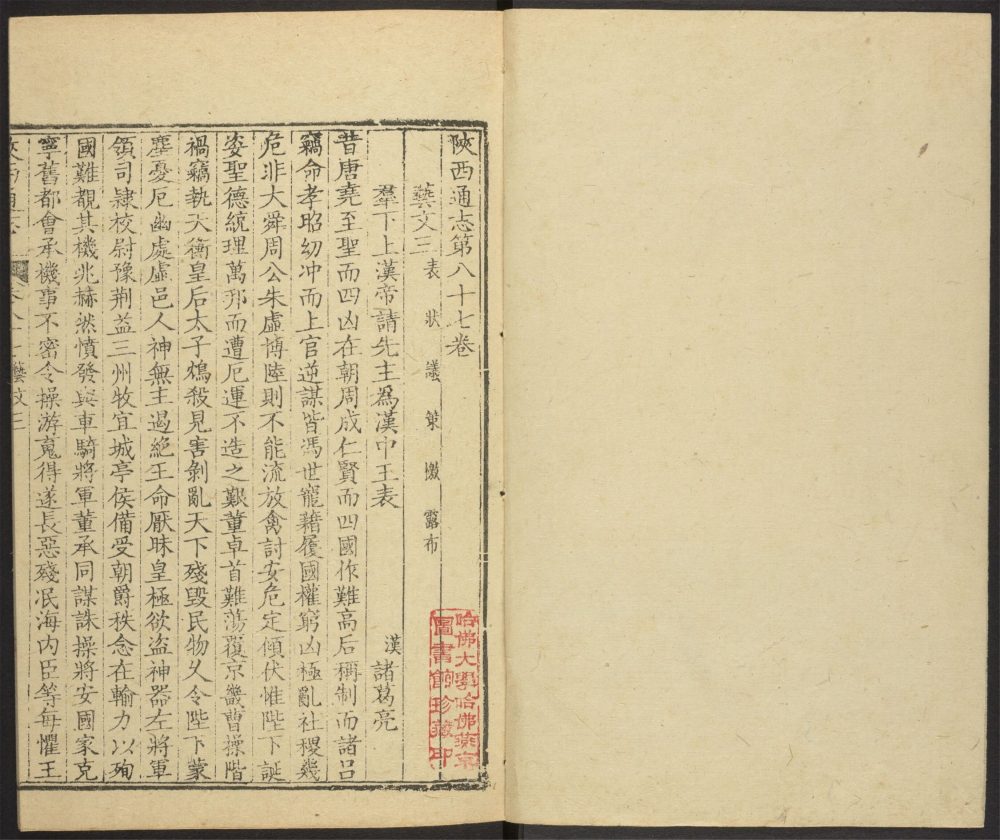 陝西通志第八十七卷
藝文三 表 狀 議 策 檄 露布
羣下上漢帝請先主為漢中王表
漢 諸葛亮
昔唐堯至聖而四凶在朝周成仁賢而四國作難高后稱制而諸呂
竊命孝昭幼冲而上官逆謀皆馮世寵藉履國權窮凶極亂社稷幾
危非大舜周公朱虛博陸則不能流放禽討安危定傾伏惟陛下誕
姿聖德統理萬邦而遭厄運不造之艱董卓首難蕩覆京畿曹操階
禍竊執天衡皇后太子鴆殺見害剝亂天下殘毀民物乆令陛下蒙
塵憂厄幽處虛邑人神無主遏絶王命厭昧皇極欲盜神器左將軍
領司隷校尉豫荆益三州牧宜城亭侯備受朝爵秩念在輸力以殉
國難覩其機兆赫然憤發與車騎將軍董承同謀誅操將安國家克
寧舊都會承機事不密令操游䰟得遂長惡殘泯海内臣等每懼王
藝文三
哈佛大學哈佛燕京
圖書館珍藏印